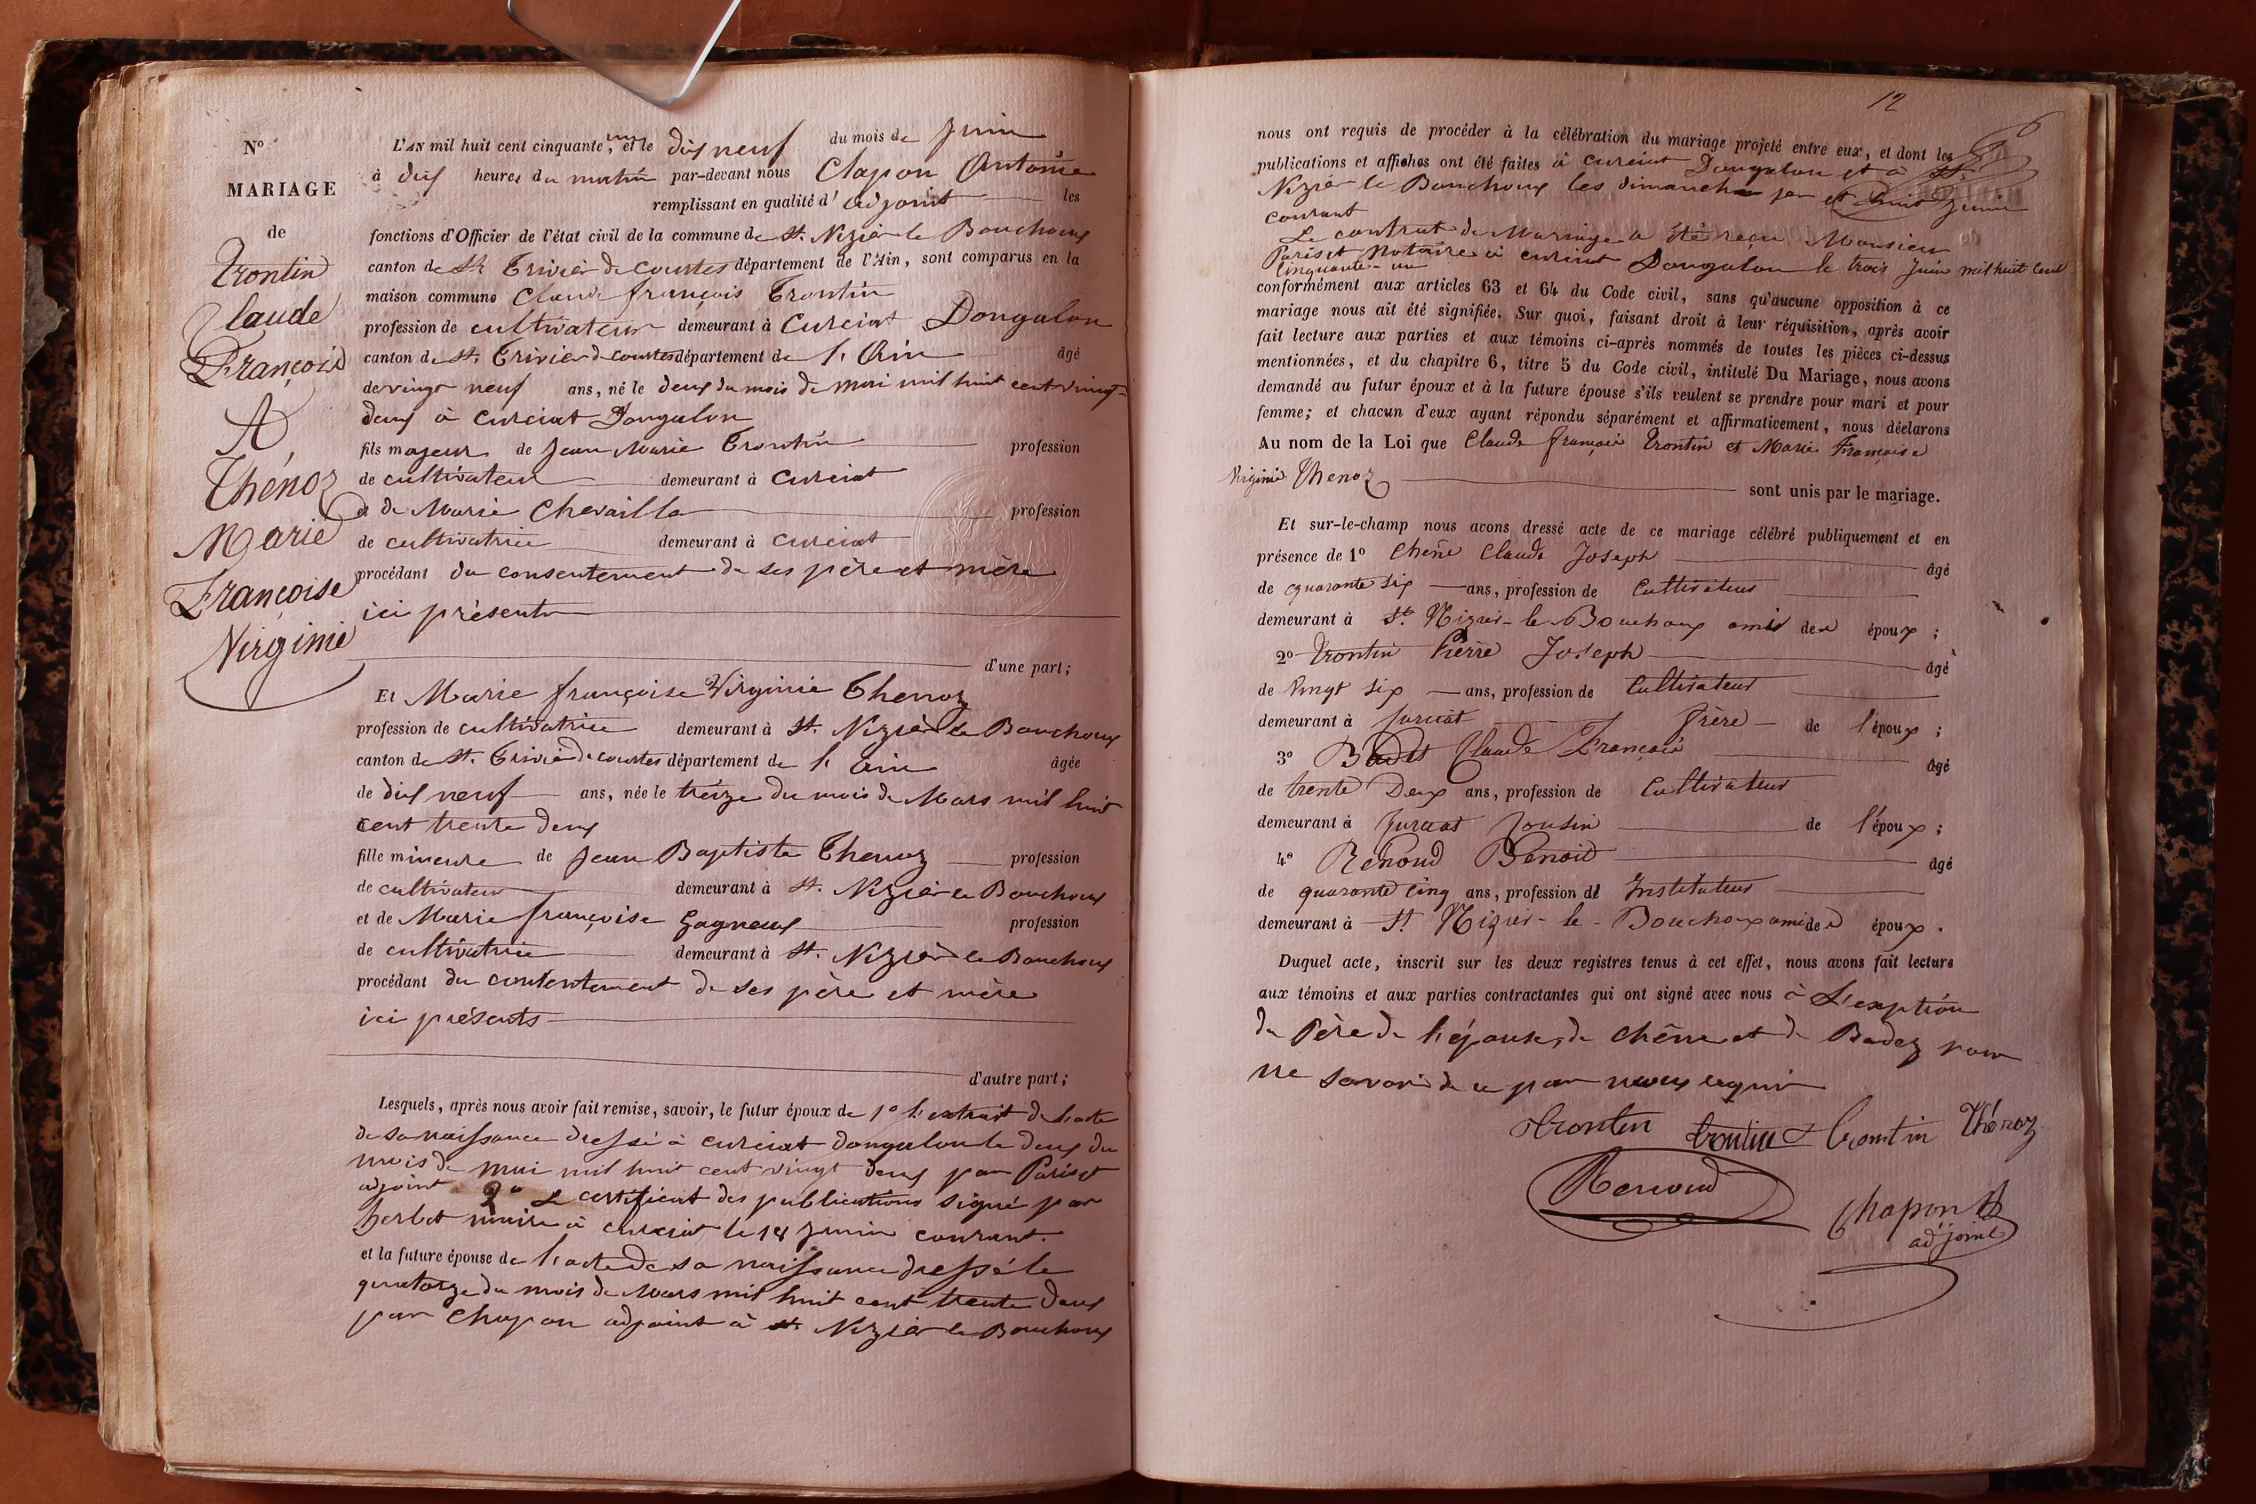 N°
MARIAGE
de
Trontin
Claude
François
A
Thénoz
Marie
Françoise
Virginie
L'AN mil huit cent cinquante un, et le dix neuf du mois de Juin
à dix heures du matin par-devant nous Chapon Antoine
remplissant en qualité d'adjoint les
fonctions d'Officier de l'état civil de la commune de St. Nizier le Bouchoux
canton de St Trivier de courtes département de l'Ain, sont comparus en la
maison commune Claude françois Trontin
profession de cultivateur demeurant à Curciat Dongalon
canton de St. Trivier d courtes département de l'Ain âgé
de vingt neuf ans, né le deux du mois de mai mil huit cent vingt-
deux à Curciat Dongalon
fils majeur de Jean Marie Trontin profession
de cultivateur demeurant à Curciat
et de Marie Chevailla profession
de cultivatrice demeurant à Curciat
procédant du consentement de ses père et mère
ici présents
d'une part;
Et Marie françoise Virginie Thenoz
profession de cultivatrice demeurant à St. Nizier le Bouchoux
canton de St. Trivier de courtes département de l'Ain âgée
de dix neuf ans, née le treize du mois de Mars mil huit
cent trente deux
fille mineure de Jean Baptiste Thenoz profession
de cultivateur demeurant à St. Nizier le Bouchoux
et de Marie françoise Gagneux profession
de cultivatrice demeurant à St. Nizier le Bouchoux
procédant du contentement de ses père et mère
ici présents
d'autre part;
Lesquels, après nous avoir fait remise, savoir, le futur époux de 1° l'extrait de l'acte
de sa naissance dressé à curciat dongalon le deux du
mois de mai mil huit cent vingt deux par Pariset
adjoint 2° Le certificat des publications signé par
herbet maire à curciat le 18 Juin courant.
et la future épouse de l'acte de sa naissance dressé le
quatorze du mois de Mars mil huit cent trente deux
par Chapon adjoint à St. Nizier le Bouchoux
12
nous ont requis de procéder à la célébration du mariage projeté entre eux, et dont les
publications et affiches ont été faites à curciat Dongalon et à St.
Nizier le Bouchoux les dimanche 1er et huit Juin
courant
Le contrat de Mariage a été reçu Monsieur
Pariset Notaire à curciat Dongalon le trois Juin mil huit cent
cinquante-un
conformément aux articles 63 et 64 du Code civil, sans qu'aucune opposition à ce
mariage nous ait été signifiée. Sur quoi, faisant droit à leur réquisition, après avoir
fait lecture aux parties et aux témoins ci-après nommés de toutes les pièces ci-dessus
mentionnées, et du chapitre 6, titre 5 du Code civil, intitulé Du Mariage, nous avons
demandé au futur époux et à la future épouse s'ils veulent se prendre pour mari et pour
femme; et chacun d'eux ayant répondu séparément et affirmativement, nous déclarons
Au nom de la Loi que Claude françois Trontin et Marie Françoise
Virginie Thenoz sont unis par le mariage.
Et sur-le-champ nous avons dressé acte de ce mariage célébré publiquement et en
présence de 1° Chêne Claude Joseph âgé
de quarante six ans, profession de Cultivateur
demeurant à St. Nizier-le-Bouchoux amis des époux;
2° Trontin Pierre Joseph âgé
de Vingt six ans, profession de Cultivateur
demeurant à Curciat frère de l'époux;
3° Claude François âgé
de trente Deux ans, profession de Cultivateur
demeurant à Curciat Cousin de l'époux;
4° Renoud Benoit âgé
de quarante cinq ans, profession d' Instituteur
demeurant à St Nizier-le-Bouchoux ami des époux.
Duquel acte, inscrit sur les deux registres tenus à cet effet, nous avons fait lecture
aux témoins et aux parties contractantes qui ont signé avec nous à L'exeption
du Père de l'épouse, de Chêne et de Badez pour
ne savoir de ce par nous requis
Trontin trontin Trontin Thénoz
Renoud
Chapon
adjoint